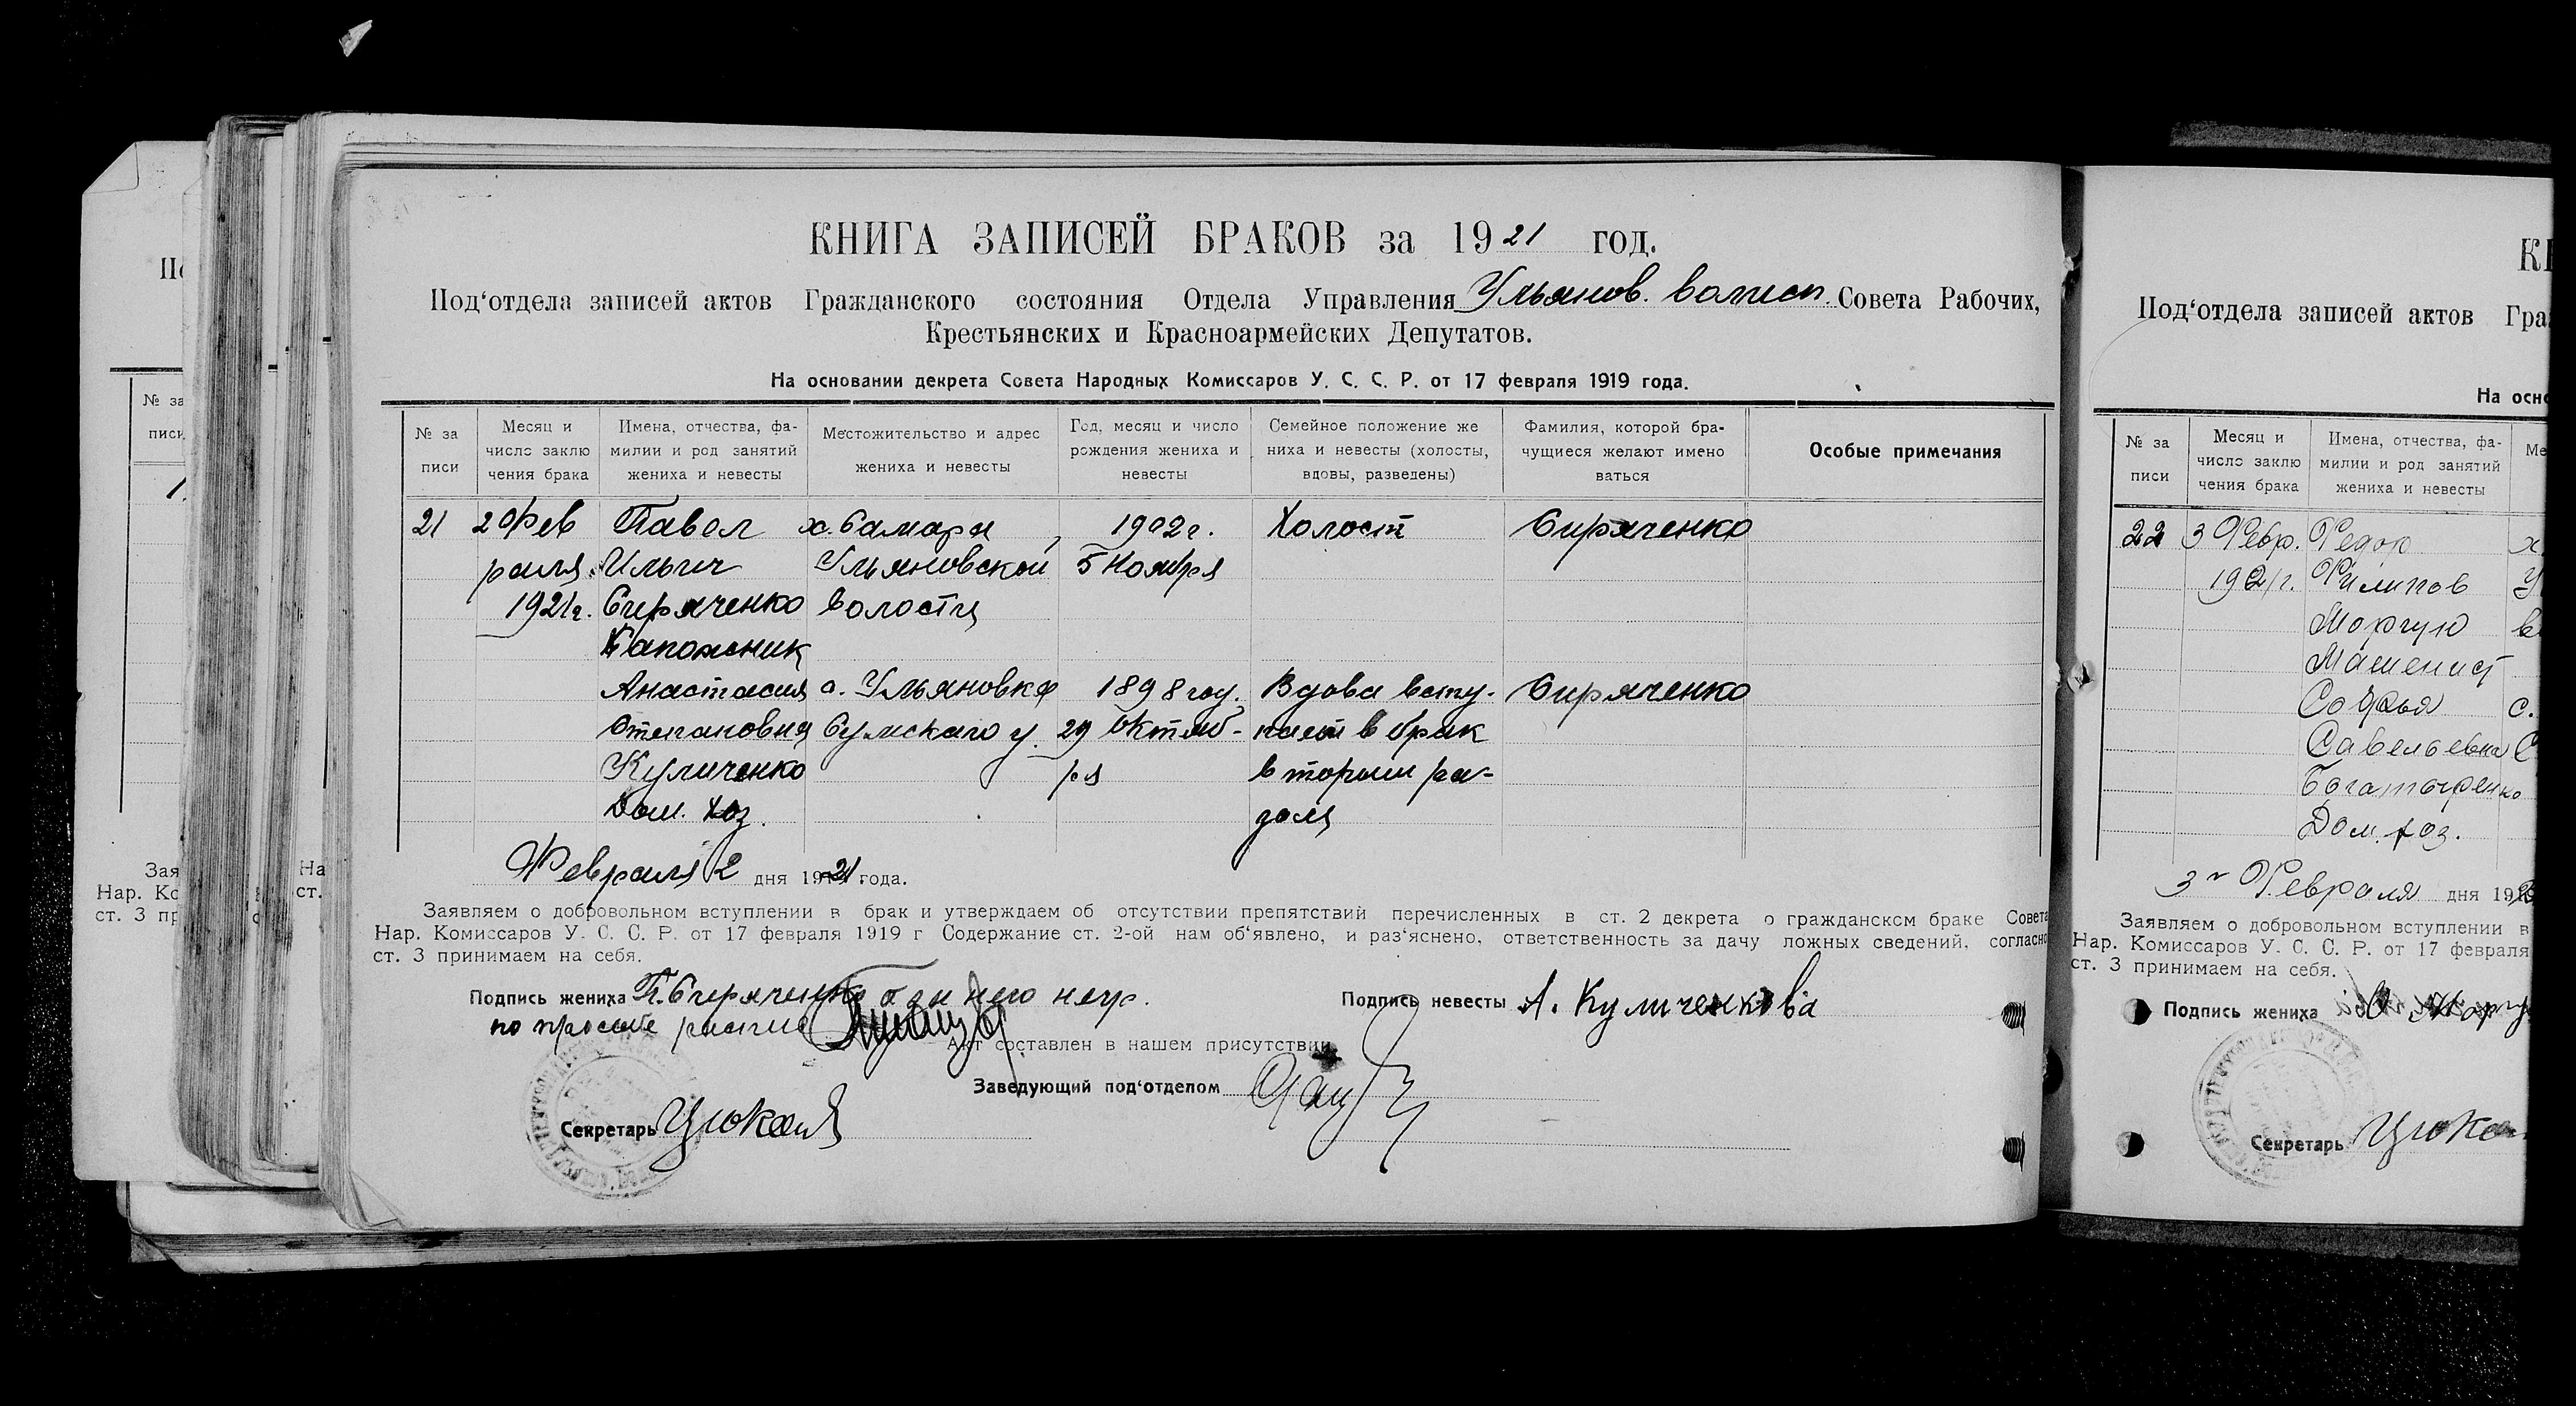 КНИГА ЗАПИСЕЙ БРАКОВ за 1921 год.
Под‘отдела записей актов Гражданского состояния Отдела Управления Ульянов. волисп. Совета Рабочих,
Крестьянских и Красноармейских Депутатов.
На основании декрета Совета Народных Комиссаров У. С. С. Р. от 17 февраля 1919 года.
№ за
писи
Месяц и
число заклю
чения брака
Имена, отчества, фа-
милии и род занятий
жениха и невесты
Местожительство и адрес
жениха и невесты
Год, месяц и число
рождения жениха и
невесты
Семейное положение же
ниха и невесты (холосты,
вдовы, разведены)
Фамилия, которой бра-
чущиеся желают имено
ваться
Особые примечания
21
2 Фев
раля
1921 г.
Павел
Ильич
Сиряченко
Сапожник
х. Самара
Ульяновской
волости
1902 г.
5 Ноября
Холост
Сиряченко
Анастасия
Степановна
Куличенко
Дом. хоз.
с. Ульяновка
Сумскаго у.
1898 году
29 Октяб-
ря
Вдова всту-
пает в брак
вторым ра-
зом
Сиряченко
Февраля 2 дня 1921 года.
Заявляем о добровольном вступлении в брак и утверждаем об отсутствии препятствий перечисленных в ст. 2 декрета о гражданском браке Совета
Нар. Комиссаров У. С. С. Р. от 17 февраля 1919 г Содержание ст. 2-ой нам об‘явлено, и раз‘яснено, ответственность за дачу ложных сведений, согласно
ст. 3 принимаем на себя.
Подпись жениха П. Сиряченко а за него негр.
по просьбе
Подпись невесты А. Куличенкова
Акт составлен в нашем присутствии
Заведующий под‘отделом
Секретарь
КН
Под‘отдела записей актов Граж
На осно
№ за
писи
Месяц и
число заклю
чения брака
Имена, отчества, фа-
милии и род занятий
жениха и невесты
Ме
22
3 Февр.
1921 г.
Федор
Филипов
Моргун
Машенист
Софья
Савельевна
Богатыренко
Дом. хоз.
х
У
в
с.
С
3 г Февраля дня 19
Заявляем о добровольном вступлении в
Нар. Комиссаров У. С. С. Р. от 17 февраля
ст. 3 принимаем на себя.
Подпись жениха
Секретарь
По
№ за
писи
Зая
Нар. Ко
ст. 3 пр
На
ст.